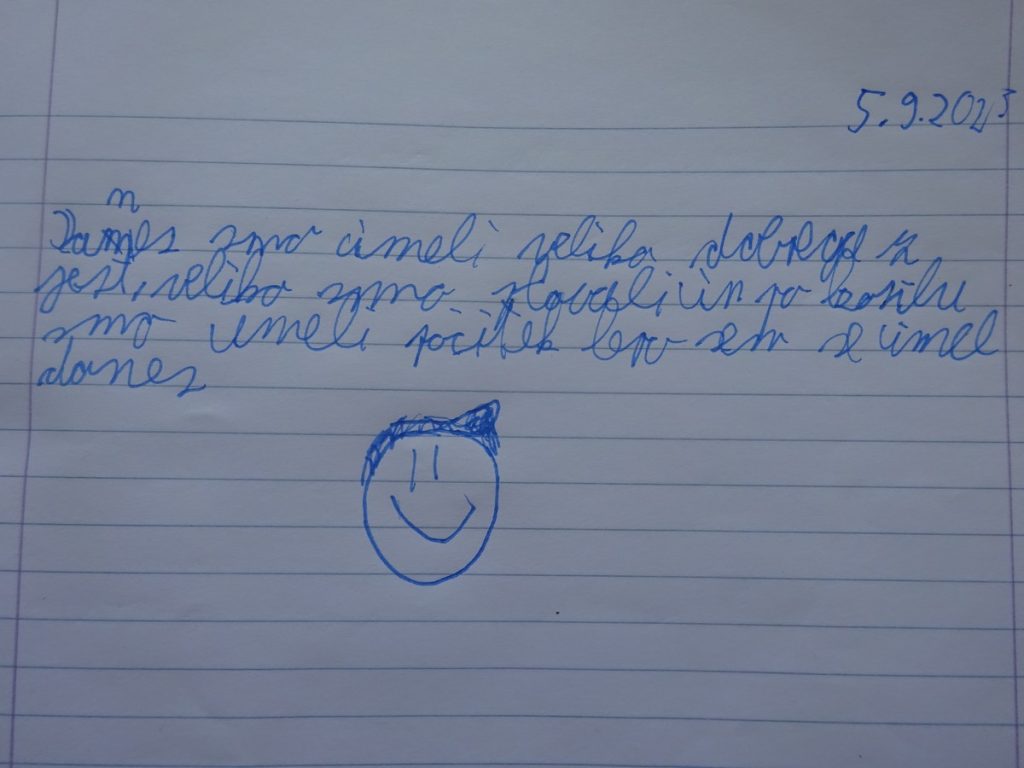 5.9.2023
Danes smo imeli veliko dobrega za
jest, veliko smo in po kosilu
smo imeli počitek lepo sem se imel
danes